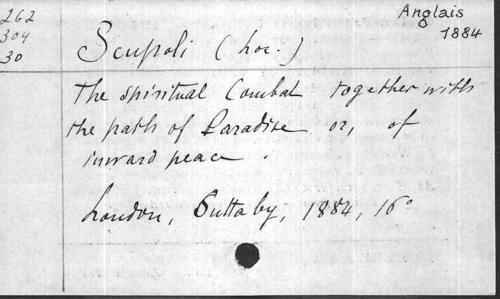 262
304
30
Anglais
1884
Scupoli (Loc.)
The spiritual Combat together with
the path of Paradise or, of
inward peace.
London, Suttaby, 1884, 16°